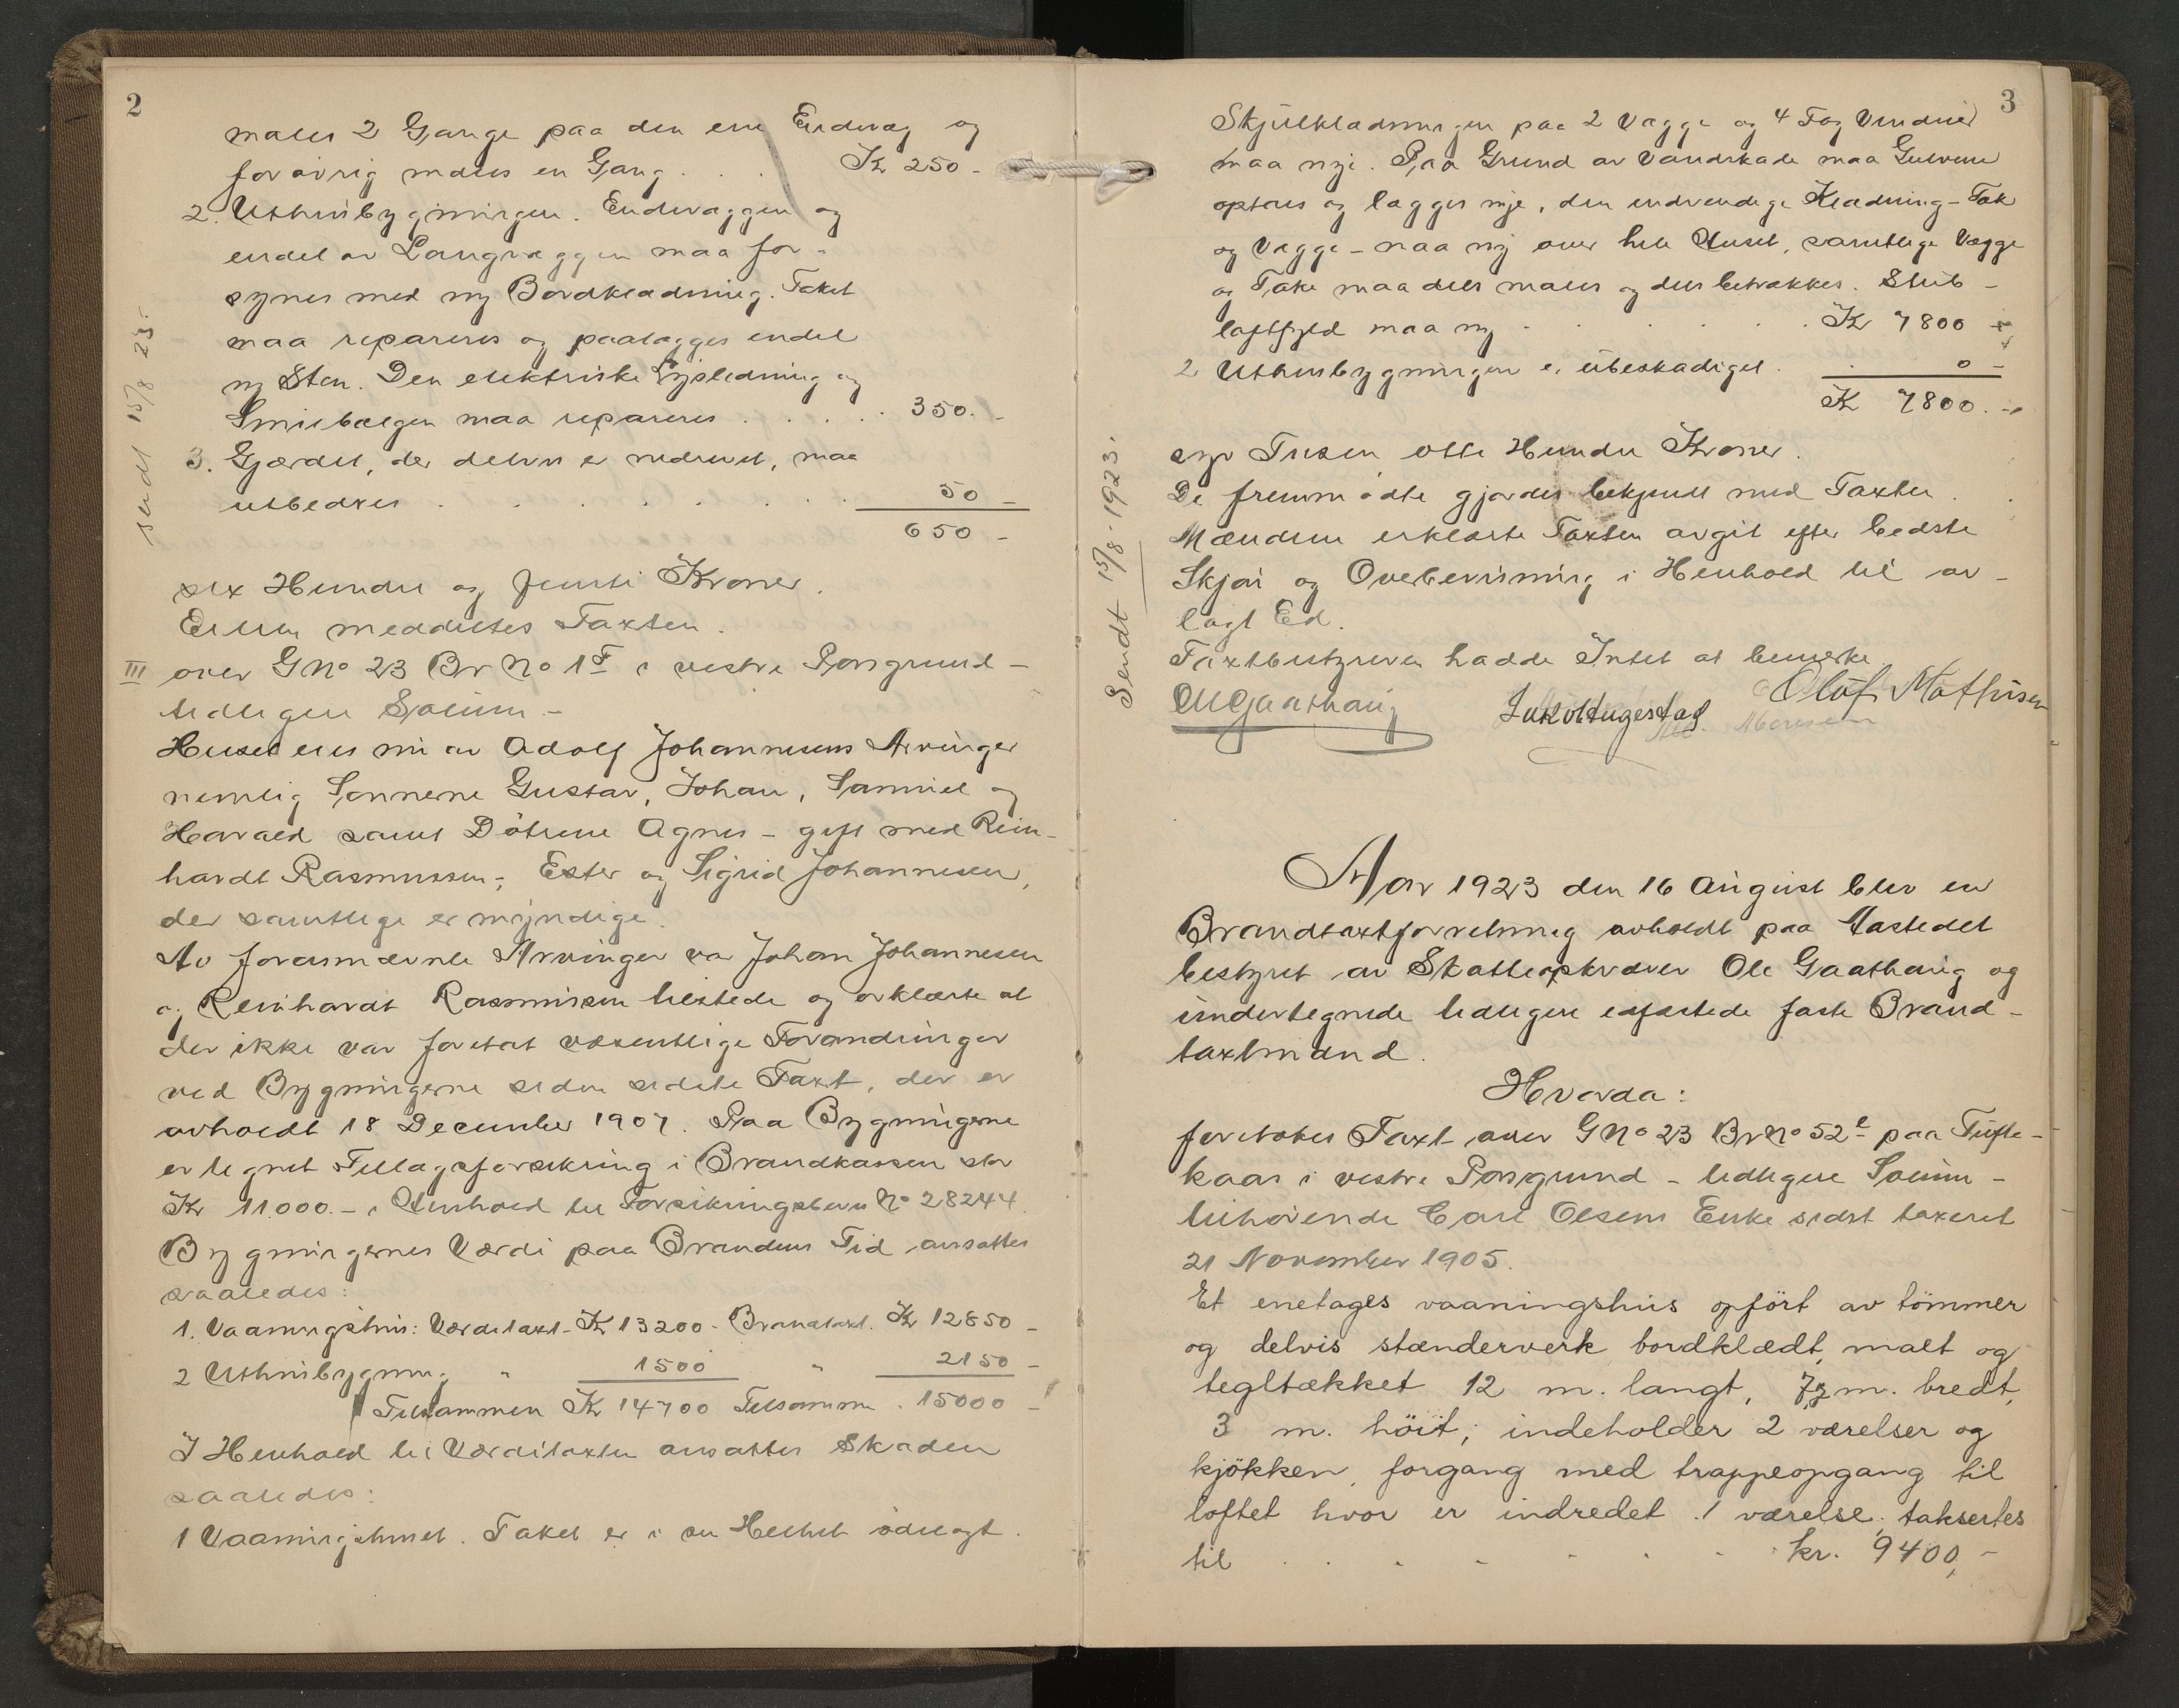 2
males 2 Gange paa den ene Endevæg og
forøvrig males en Gang . . . Kr 250 -
2. Uthusbygningen. Endevæggen og
endel av Langvæggen maa for-
synes med ny Bordklædning. Taket
maa repareres og paalægges endel
ny Sten. Den elektriske Lysledning og
Smiebælgen maa repareres . . . . . 350. -
3. Gjærdet, der delvis er nedrevet, maa
utbedres . . . . . . . 50 -
650 -
sendt 15/8 23.
sex Hundre og femti Kroner.
Eieren meddeltes Taxten.
III over G No 23 Br No 1 F i vestre Porsgrund -
tidligere Solum -
Huset eies nu av Adolf Johannesens Arvinger
nemlig Sønnerne Gustav, Johan, Samuel og
Harald samt Døtrene Agnes - gift med Rein-
hardt Rasmussen -, Ester og Sigrid Johannesen,
der samtlige er myndige.
Av forannævnte Arvinger var Johan Johannesen
og Reinhardt Rasmussen tilstede og erklærte at
der ikke var foretat væsentlige Forandringer
ved Bygningerne siden sidste Taxt, der er
avholdt 18 December 1907. Paa Bygningerne
er tegnet Tillægsforsikring i Brandkassen stor
Kr 11.000.- i Henhold til Forsikringsbevis No 28244.
Bygningernes Værdi paa Brandens Tid ansattes
saaledes:
1. Vaaningshus: Værditaxt - Kr 13200 - Brandtaxt. Kr 12850 -
2 Uthusbygning " 1500 " 2150 -
Tilsammen Kr 14700 Tilsammen . 15000 -
I Henhold til Værditaxten ansattes Skaden
saaledes:
1 Vaaningshuset. Taket er i sin Helhet ødelagt.
3
Skjulklædningen paa 2 Vægge og 4 Fag Vinduer
maa nye. Paa Grund av Vandskade maa Gulvene
optages og lægges nye, den indvendige Klædning - Tak
og Vægge - maa ny over hele Huset, samtlige Vægge
og Take maa dels males og dels betrækkes. Stub-
loftfyld maa ny . . . . . . Kr 7800 -
2 Uthusbygningen er ubeskadiget . . 0 -
Kr 7800. -
syv Tusen otte Hundre Kroner.
De fremmødte gjordes bekjendt med Taxten.
Mændene erklærte Taxten avgit efter bedste
Skjøn og Overbevisning i Henhold til av-
lagt Ed.
Taxtbestyreren hadde Intet at bemerke
Sendt 15/8 - 1923.
O Gaathaug Olaf Mathisen
Aar 1923 den 16 August blev en
Brandtaxtforretning avholdt paa Aastedet
bestyret av Skatteopkræver Ole Gaathaug og
undertegnede tidligere edfæstede faste Brand-
taxtmænd.
Hvorda:
foretokes Taxt over G No 23 Br No 52 e paa Tufte-
kaas i vestre Porsgrund - tidligere Solum -
tilhørende Carl Olsens Enke sidst taxeret
21 November 1905.
Et enetages vaaningshus opført av tømmer
og delvis stænderverk bordklædt, malt og
tegltækket 12 m. langt, 7,3 m. bredt,
3 m. höit; indeholder 2 værelser og
kjökken, forgang med trappeopgang til
loftet hvor er indredet 1 værelse; taksertes
til . . . . . . . kr. 9400,-